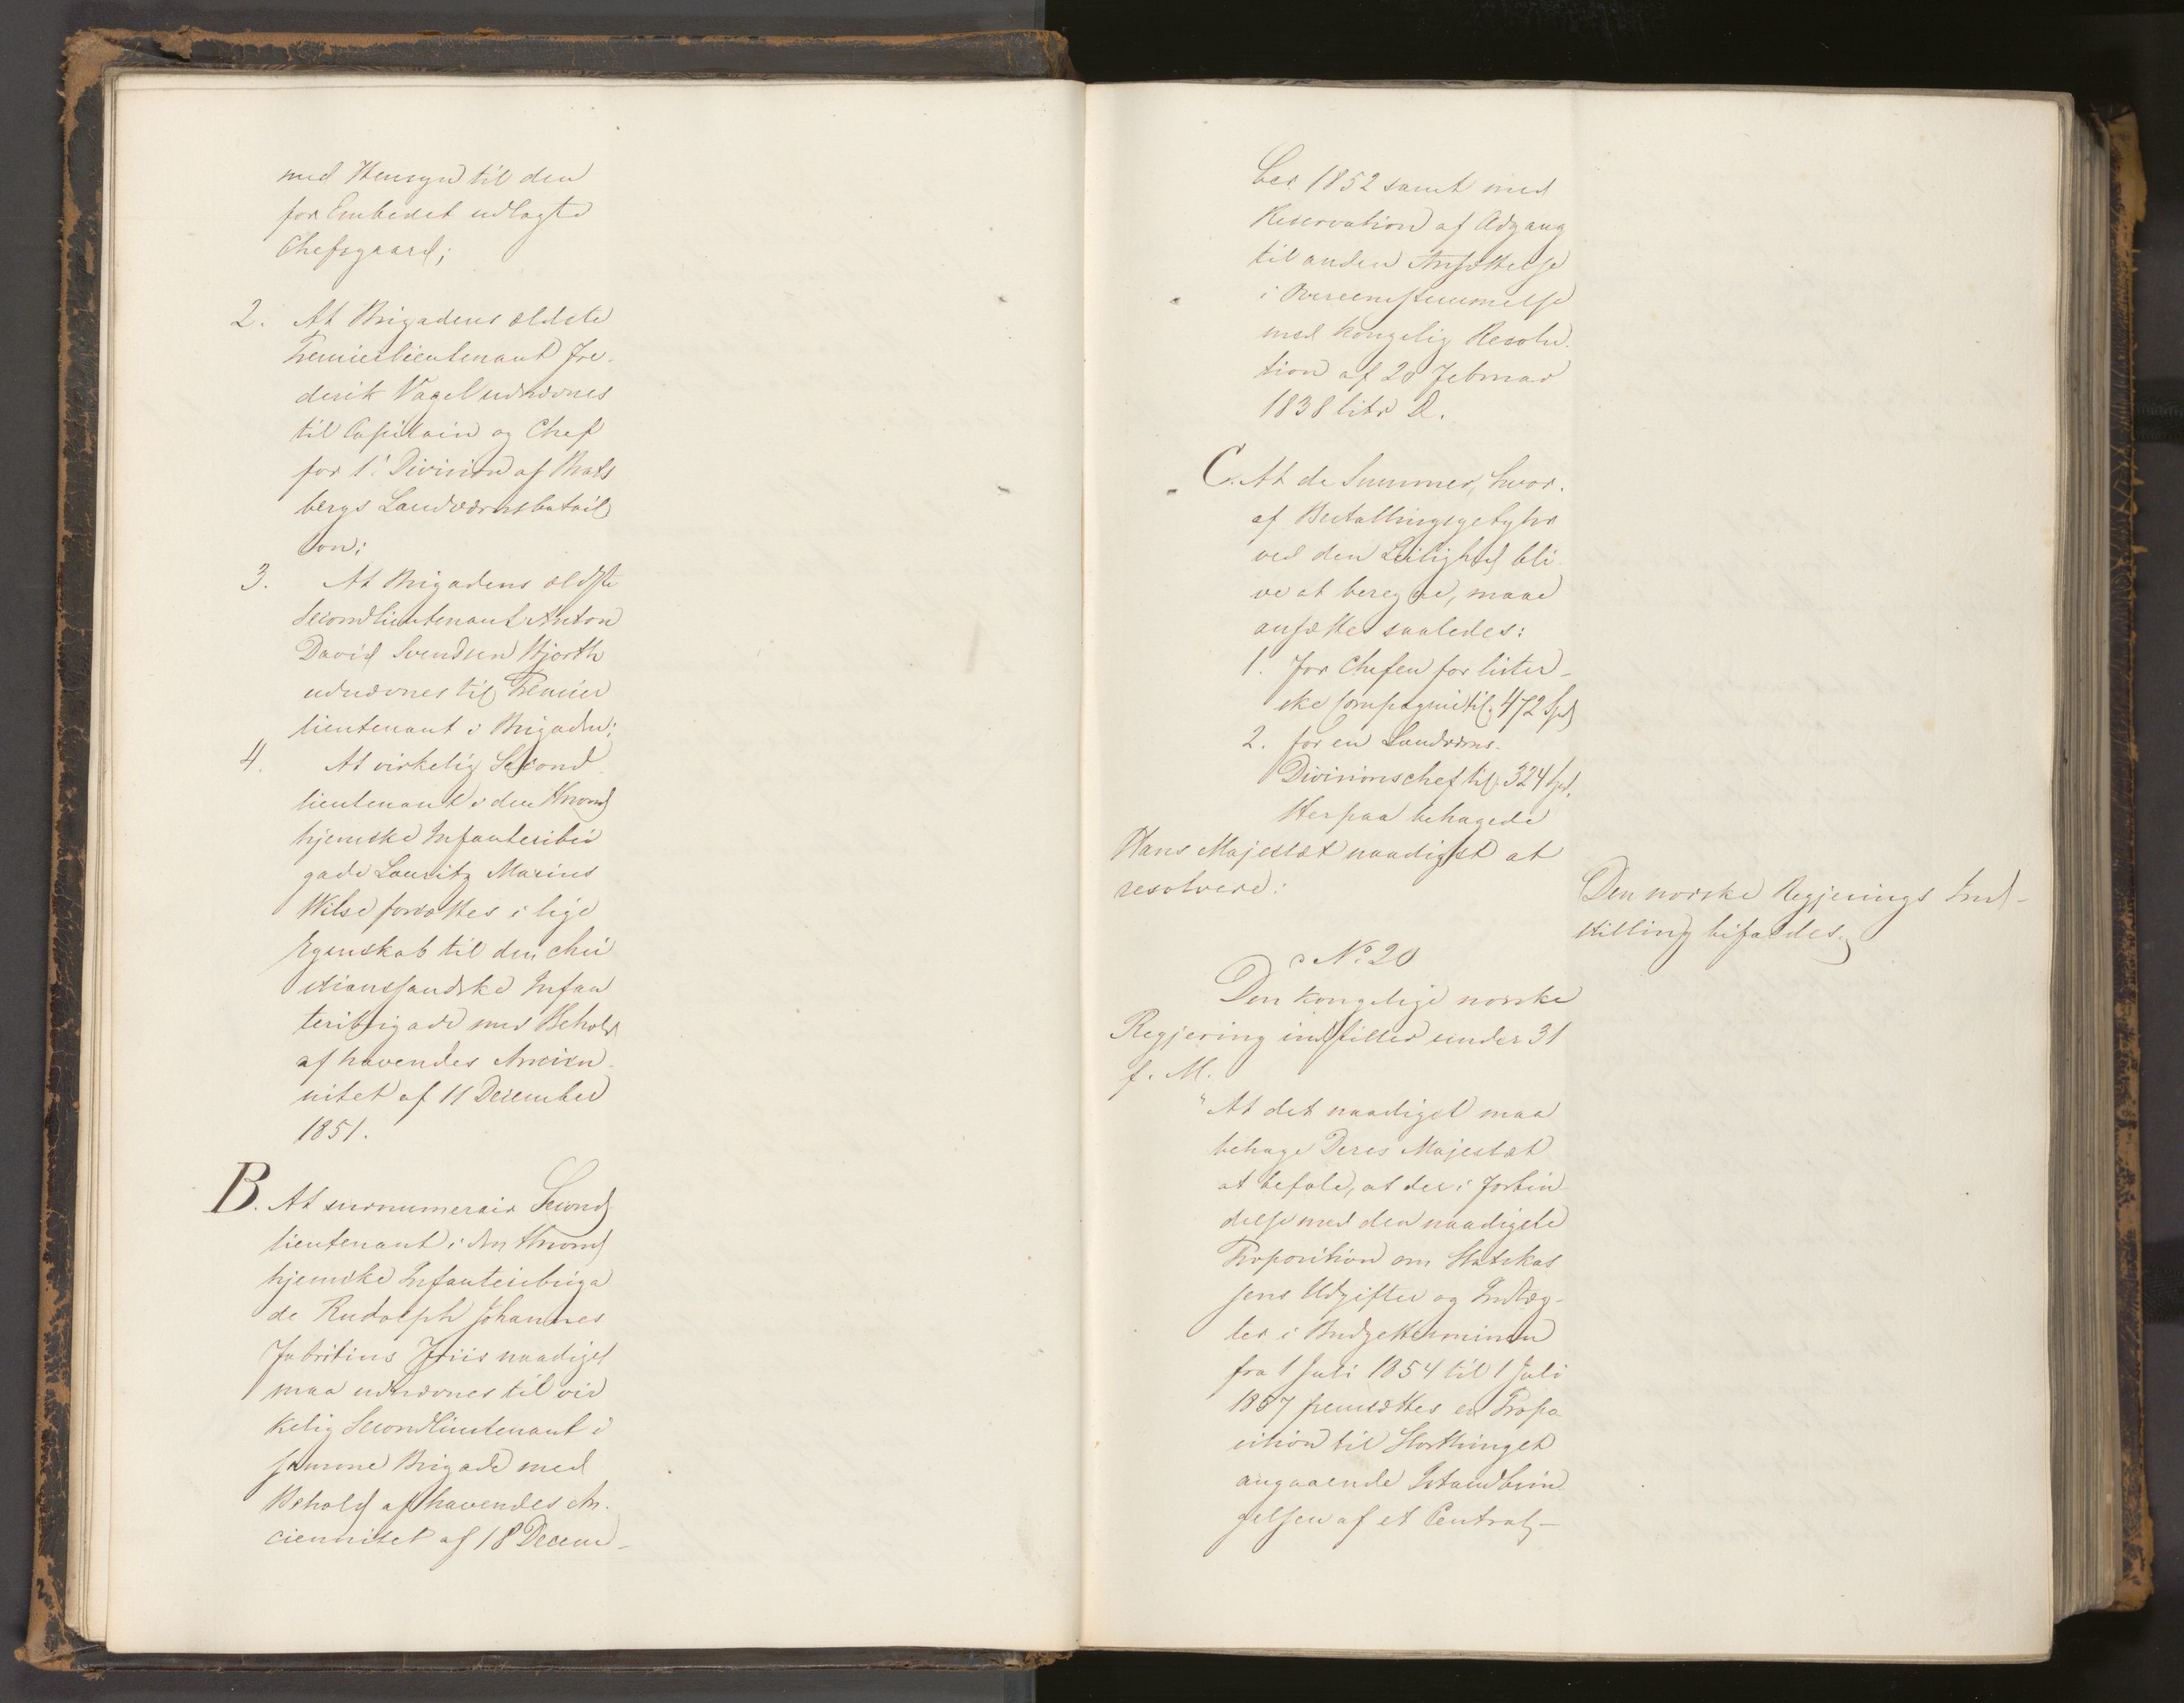 med Hensyn til den
for Embedet udlagte
Chefsgaard;
2. At Brigadens ældste
Premierlieutenant Fre-
derik Vagel udnævnes
til Capitain og Chef
for 1. Division af Brats
bergs Landværnsbatail
lon;
3. At Brigadens ældste
Secondlieutenant Anton
David Svendsen Hjorth
udnævnes til Premier
lieutenant i Brigaden;
4. At virkelig Second
lieutenant i den thrond
hjemske Infanteribri
gade Lauritz Marius
Wilse forsættes i lige
Egenskab til den chri
stianssandske Infan
teribrigade med Behold
af havendes Ancien
nitet af 11 December
1851.
B. At surnumerair Second
lieutenant i den thrond
hjemske Infanteribriga
de Rudolph Johannes
Fabritius Friis naadigst
maa udnævnes til vir
kelig Secondlieutenant i
samme Brigade med
Behold af havendes An-
ciennitet af 18 Decem-
ber 1852 samt med
Reservation af Adgang
til anden Ansættelse
i Overeensstemmelse
med kongelig Resolu-
tion af 20 Februar
1838 litr D.
C. At de Summer, hvor-
af Bestallingsgebyhr
ved den Leilighed bli
ve at beregne, maae
ansættes saaledes:
1. For Chefen for lister-
ske Compagni til 472 Spd
2. for en Landværns-
Divisionschef til 324 Spd.
Herpaa behagede
Hans Majestæt naadigst at
resolvere:
Den norske Regjerings Ind-
stilling bifaldes.
No 20
Den kongelige norske
Regjering indstiller under 31
f. M.
"At det naadigst maa
behage Deres Majestæt
at befale, at der i Forbin
delse med den naadigste
Proposition om Statskas
sens Udgifter og Indtæg-
ter i Budgetterminen
fra 1 Juli 1854 til 1 Juli
1857 fremsættes en Propo
sition til Storthinget
angaaende Istandbrin
gelsen af et Central-